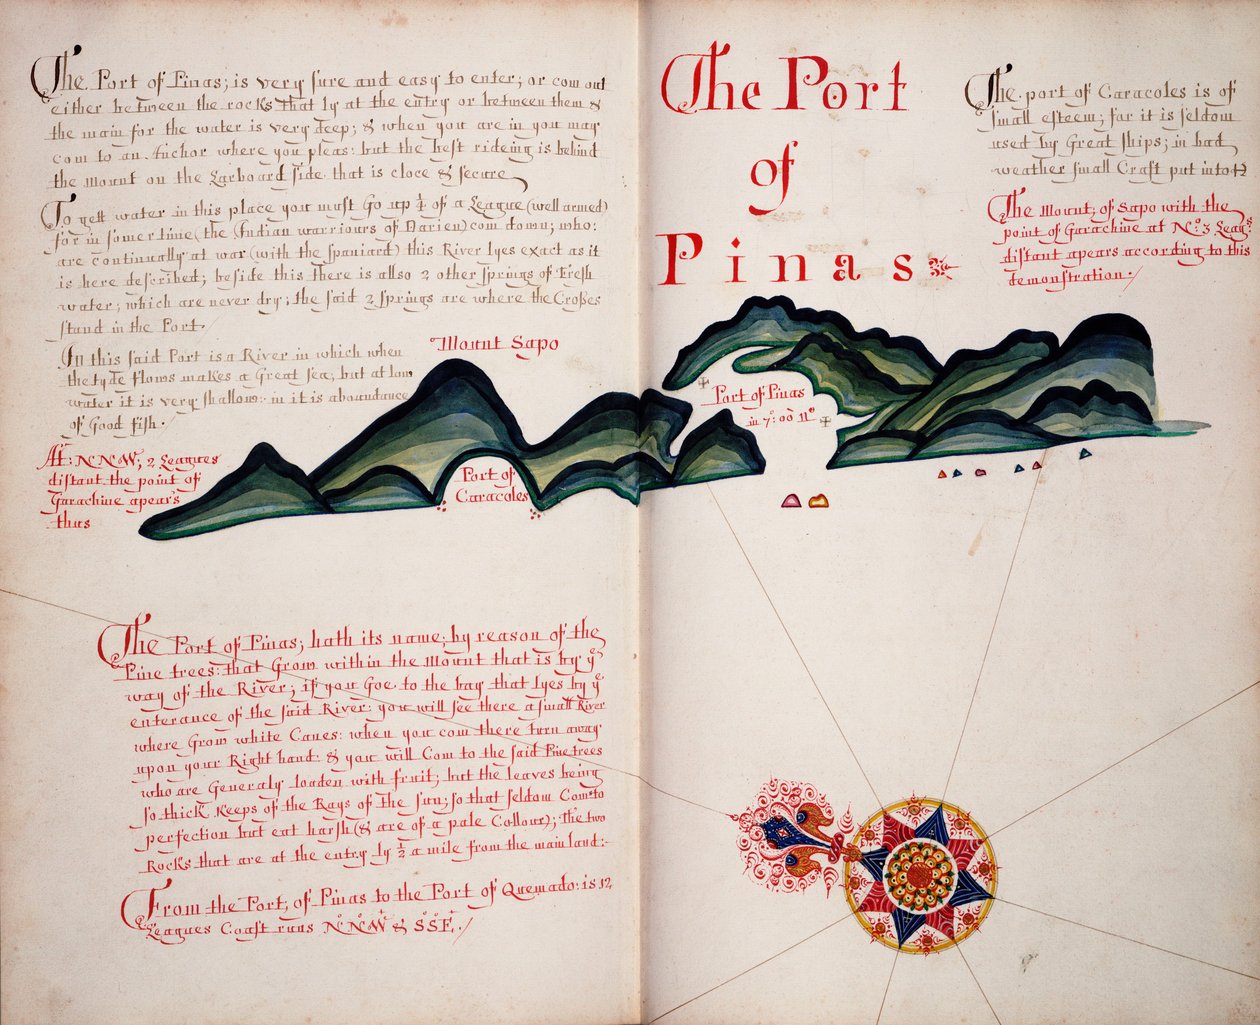 The Port of Pinas; is very sure and easy to enter; or com out
either between the rocks that ly at the entry or between them &
the main for the water is very deep; & when you are in you may
com to an Anchor where you pleas: but the best rideing is behind
the mount on the Larboard side that is cloce & secure
To gett water in this place you must Go up ¼ of a League (well armed)
for in somertime (the Indian warriours of Darien) com down; who:
are continually at war (with the spaniard) this River lyes exact as it
is here described; beside this there is allso 2 other springs of fresh
water; which are never dry; the said 2 springs are where the Crosses
stand in the Port
In this said Port is a River in which when
the tyde flows makes a Great sea; but at low
water it is very shallow: in it is aboundance
of Good fish.
Mount Sapo
At: NNW; 2 Leagues
distant the point of
Garachine apear's
thus
Port of
Caracoles
The Port of Pinas; hath its name; by reason of the
Pine trees: that Grow within the mount that is by yᵉ
way of the River; if you Goe to the bay that lyes by yᵉ
enterance of the said River: you will see there a small River
where Grow white Canes: when you com there turn away
upon your Right hand: & you will Com to the said Pine trees
who are Generaly loaden with fruit; but the leaves being
so thick keeps of the Rays of the sun; so that seldom Com to
perfection but eat harsh (& are of a pale Collour); The two
Rocks that are at the entry ly ½ a mile from the main land:
From the Port; of Pinas to the Port of Quemado: is 12
Leagues Coast runs N°N°W & S°S°E.
The Port
of
Pinas
The port of Caracoles is of
small esteem; for it is seldom
used by Great ships; in bad
weather small Craft put into it
The Mount; of Sapo with the
point of Garachine at N°. 3 Leagˢ
distant apears according to this
demonstration.
Port of Pinas
in 7°: 00 N°